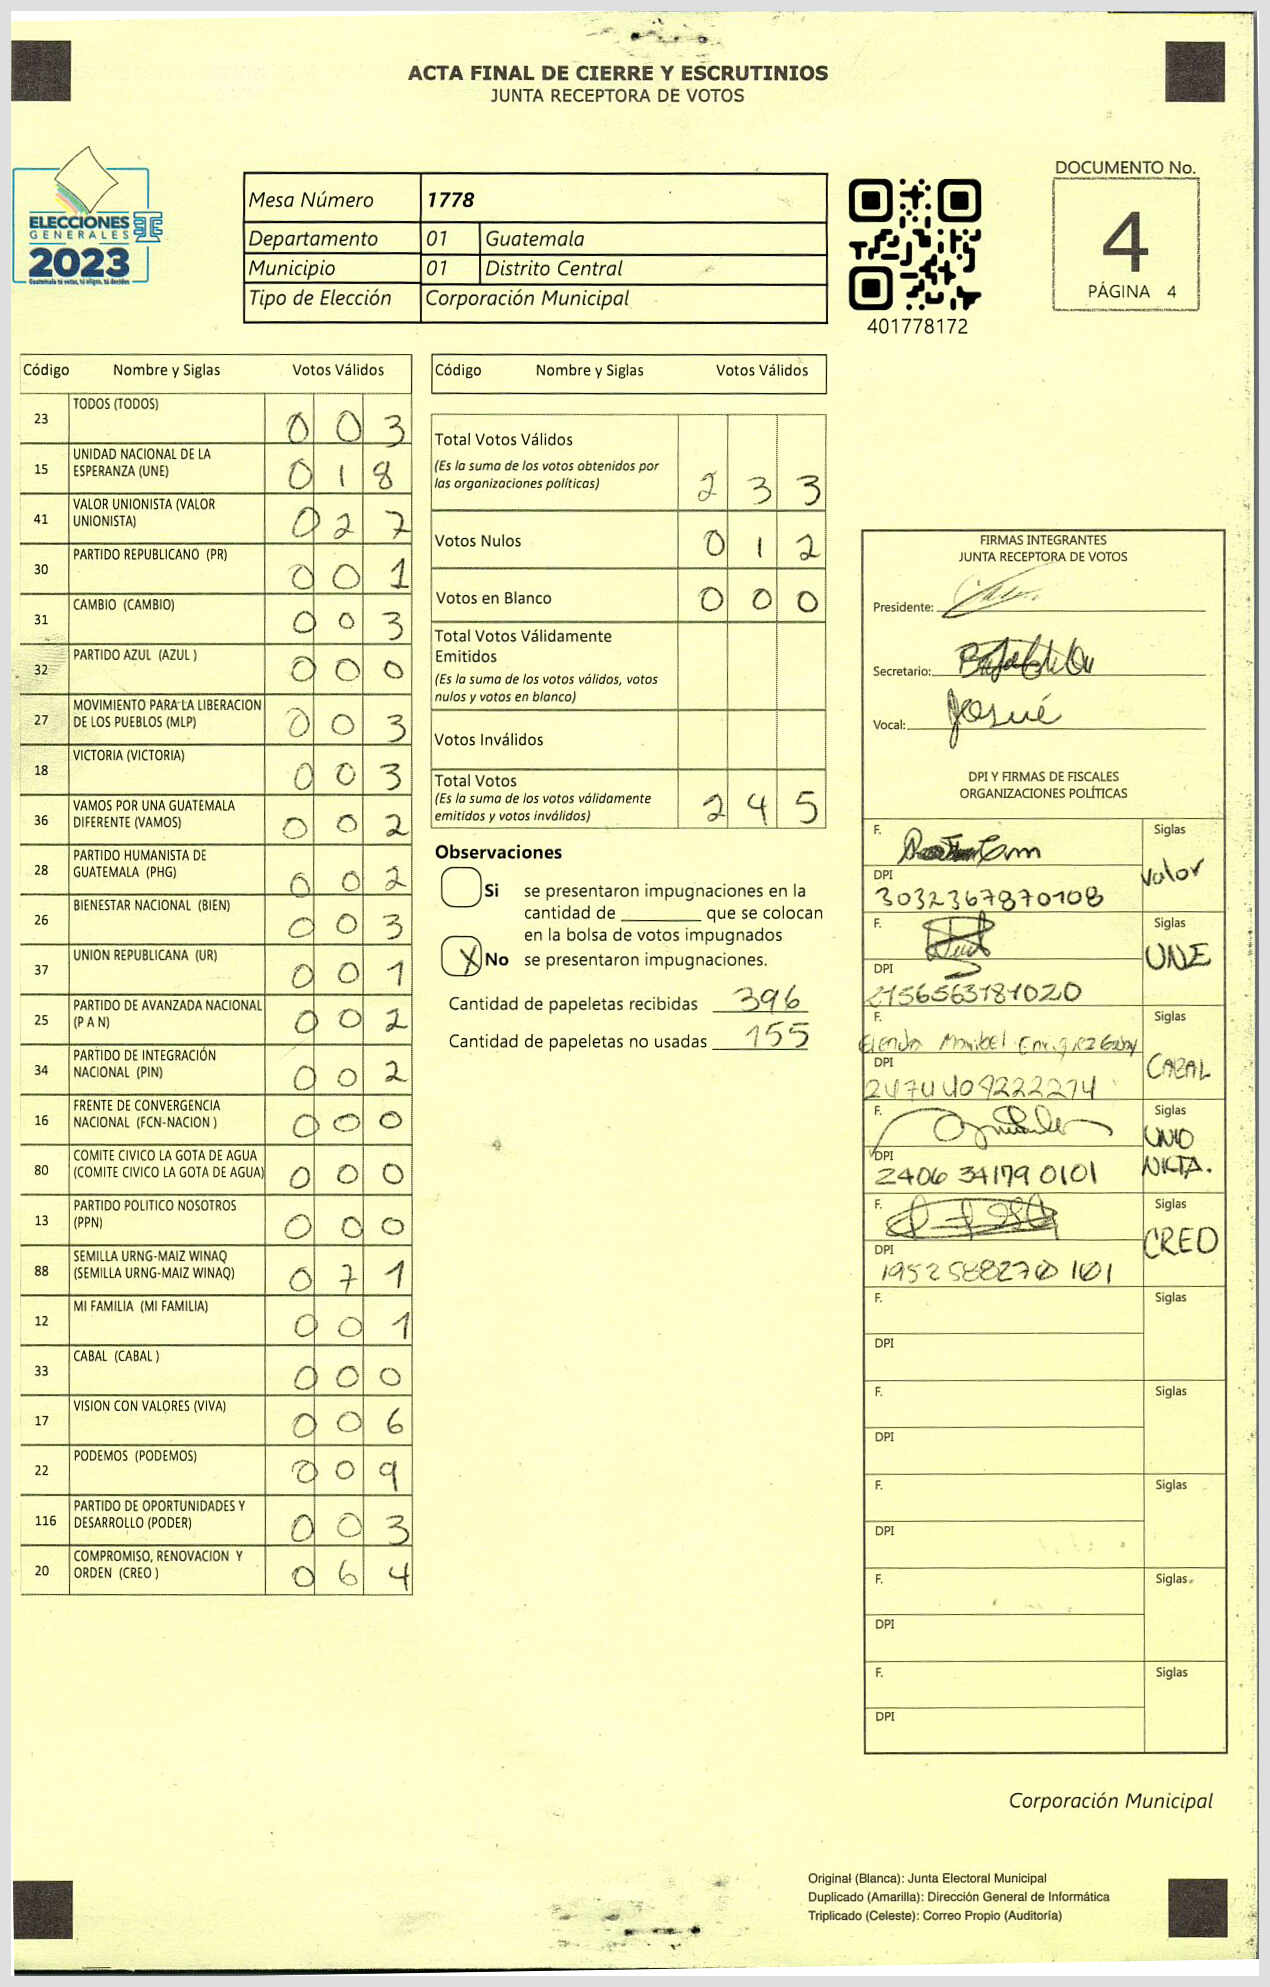 ACTA FINAL DE CIERRE Y ESCRUTINIOS
JUNTA RECEPTORA DE VOTOS
ELECCIONES
GENERALES
2023
Guatemala tú votas, tú eliges, tú decides
Mesa Número 1778
Departamento 01 Guatemala
Municipio 01 Distrito Central
Tipo de Elección Corporación Municipal
401778172
DOCUMENTO No.
4
PÁGINA 4
Código Nombre y Siglas Votos Válidos
23 TODOS (TODOS) 0 0 3
15 UNIDAD NACIONAL DE LA
ESPERANZA (UNE) 0 1 8
41 VALOR UNIONISTA (VALOR
UNIONISTA) 0 2 7
30 PARTIDO REPUBLICANO (PR) 0 0 1
31 CAMBIO (CAMBIO) 0 0 3
32 PARTIDO AZUL (AZUL ) 0 0 0
27 MOVIMIENTO PARA LA LIBERACION
DE LOS PUEBLOS (MLP) 0 0 3
18 VICTORIA (VICTORIA) 0 0 3
36 VAMOS POR UNA GUATEMALA
DIFERENTE (VAMOS) 0 0 2
28 PARTIDO HUMANISTA DE
GUATEMALA (PHG) 0 0 2
26 BIENESTAR NACIONAL (BIEN) 0 0 3
37 UNION REPUBLICANA (UR) 0 0 1
25 PARTIDO DE AVANZADA NACIONAL
(P A N) 0 0 2
34 PARTIDO DE INTEGRACIÓN
NACIONAL (PIN) 0 0 2
16 FRENTE DE CONVERGENCIA
NACIONAL (FCN-NACION ) 0 0 0
80 COMITE CIVICO LA GOTA DE AGUA
(COMITE CIVICO LA GOTA DE AGUA) 0 0 0
13 PARTIDO POLITICO NOSOTROS
(PPN) 0 0 0
88 SEMILLA URNG-MAIZ WINAQ
(SEMILLA URNG-MAIZ WINAQ) 0 7 1
12 MI FAMILIA (MI FAMILIA) 0 0 1
33 CABAL (CABAL ) 0 0 0
17 VISION CON VALORES (VIVA) 0 0 6
22 PODEMOS (PODEMOS) 0 0 9
116 PARTIDO DE OPORTUNIDADES Y
DESARROLLO (PODER) 0 0 3
20 COMPROMISO, RENOVACION Y
ORDEN (CREO ) 0 6 4
Código Nombre y Siglas Votos Válidos
Total Votos Válidos
(Es la suma de los votos obtenidos por
las organizaciones políticas) 2 3 3
Votos Nulos 0 1 2
Votos en Blanco 0 0 0
Total Votos Válidamente
Emitidos
(Es la suma de los votos válidos, votos
nulos y votos en blanco)
Votos Inválidos
Total Votos
(Es la suma de los votos válidamente
emitidos y votos inválidos) 2 4 5
Observaciones
Si se presentaron impugnaciones en la
cantidad de ________ que se colocan
en la bolsa de votos impugnados
X No se presentaron impugnaciones.
Cantidad de papeletas recibidas 396
Cantidad de papeletas no usadas 155
FIRMAS INTEGRANTES
JUNTA RECEPTORA DE VOTOS
Presidente:
Secretario:
Vocal: Josué
DPI Y FIRMAS DE FISCALES
ORGANIZACIONES POLÍTICAS
F. Siglas
DPI Valor
3032367870108
F. Siglas
UNE
DPI
F. Siglas
Maribel
DPI CABAL
F. Siglas
UNIO
DPI NISTA.
2406 34179 0101
F. Siglas
CREO
DPI
1952588270101
F. Siglas
DPI
F. Siglas
DPI
F. Siglas
DPI
F. Siglas
DPI
F. Siglas
DPI
Corporación Municipal
Original (Blanca): Junta Electoral Municipal
Duplicado (Amarilla): Dirección General de Informática
Triplicado (Celeste): Correo Propio (Auditoría)